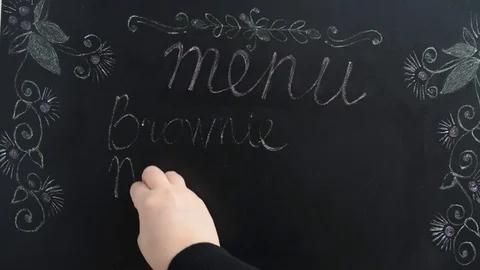 menu
Brownie
n